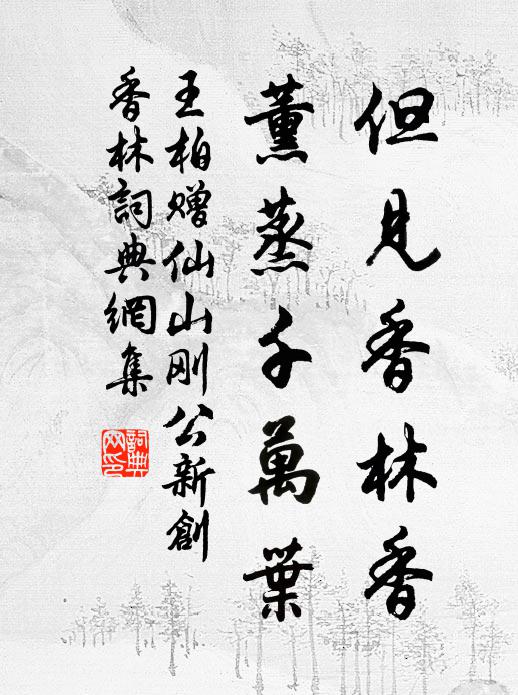 但見香林香
薰蒸千萬葉
王柏赠仙山刚公新創
香林詞典網集
詞典
网印